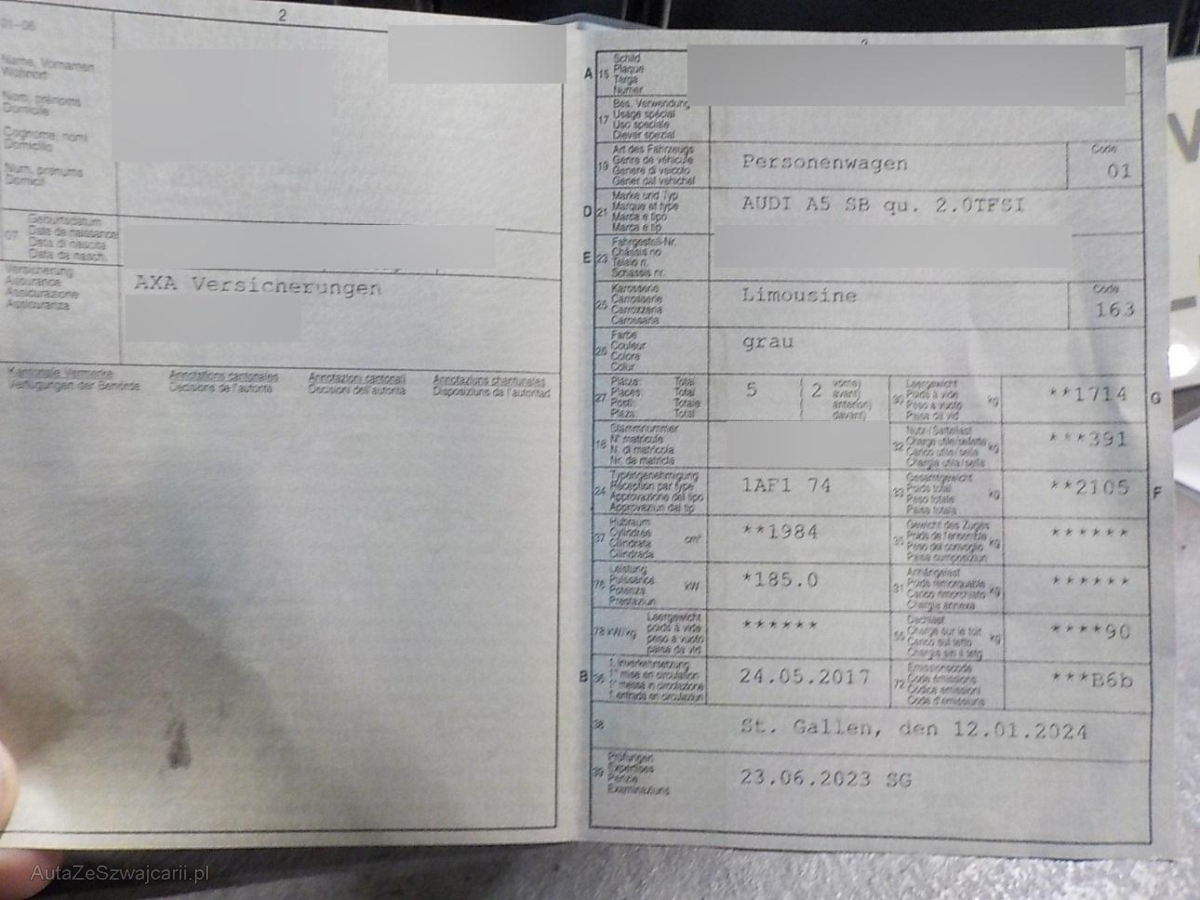 2
01-06
Name, Vornamen
Wohnort
Nom, prénoms
Domicile
Cognome, nomi
Domicilio
Num, prenums
Domicil
07
Geburtsdatum
Date de naissance
Data di nascita
Data da nasch.
Versicherung
Assurance
Assicurazione
Assicuranza
AXA Versicherungen
Kantonale Vermerke
Verfügungen der Behörde
Annotations cantonales
Décisions de l'autorité
Annotazioni cantonali
Decisioni dell'autorità
Annotaziuns chantunalas
Disposiziuns da l'autoritad
A 15
Schild
Plaque
Targa
Numer
17
Bes. Verwendung
Usage spécial
Uso speciale
Diever spezial
19
Art des Fahrzeugs
Genre de véhicule
Genere di veicolo
Gener dal vehichel
Personenwagen
Code
01
D 21
Marke und Typ
Marque et type
Marca e tipo
Marca e tip
AUDI A5 SB qu. 2.0TFSI
E 23
Fahrgestell-Nr.
Châssis no
Telaio n.
Schassis nr.
25
Karosserie
Carrosserie
Carrozzeria
Carossaria
Limousine
Code
163
26
Farbe
Couleur
Colore
Colur
grau
27
Plätze: Total
Places: Total
Posti: Totale
Plazs: Total
5 ( 2 vorne)
avant)
anteriori)
davant)
30
Leergewicht
Poids à vide
Peso a vuoto
Paisa da vid
kg
**1714
G
18
Stammnummer
N° matricule
N. di matricola
Nr. da matricla
32
Nutz-/Sattellast
Charge utile/sellette
Carico utile/sella
Chargia utila/sella
kg
***391
24
Typengenehmigung
Réception par type
Approvazione del tipo
Approvaziun dal tip
1AF1 74
33
Gesamtgewicht
Poids total
Peso totale
Paisa totala
kg
**2105
F
37
Hubraum
Cylindrée
Cilindrata
Cilindrada
cm³
**1984
35
Gewicht des Zuges
Poids de l'ensemble
Peso del convoglio
Paisa cumposiziun
kg
******
76
Leistung
Puissance
Potenza
Prestaziun
kW
*185.0
31
Anhängelast
Poids remorquable
Carico rimorchiato
Chargia annexa
kg
******
78 kW/kg
Leergewicht
poids à vide
peso a vuoto
paisa da vid
******
55
Dachlast
Charge sur le toit
Carico sul tetto
Chargia sin il tetg
kg
****90
B 36
1. Inverkehrsetzung
1re mise en circulation
1a messa in circolazione
1. entrada en circulaziun
24.05.2017
72
Emissionscode
Code émissions
Codice emissioni
Code d'emissiuns
***B6b
38
St. Gallen, den 12.01.2024
39
Prüfungen
Expertises
Perizie
Examinaziuns
23.06.2023 SG
AutaZeSzwajcarii.pl